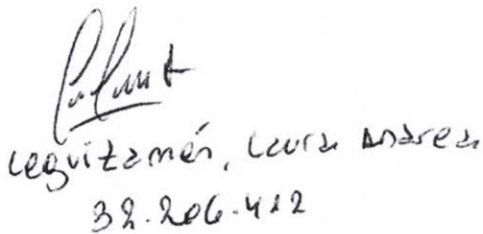 Leguizamón, Laura Andrea
32.206.412